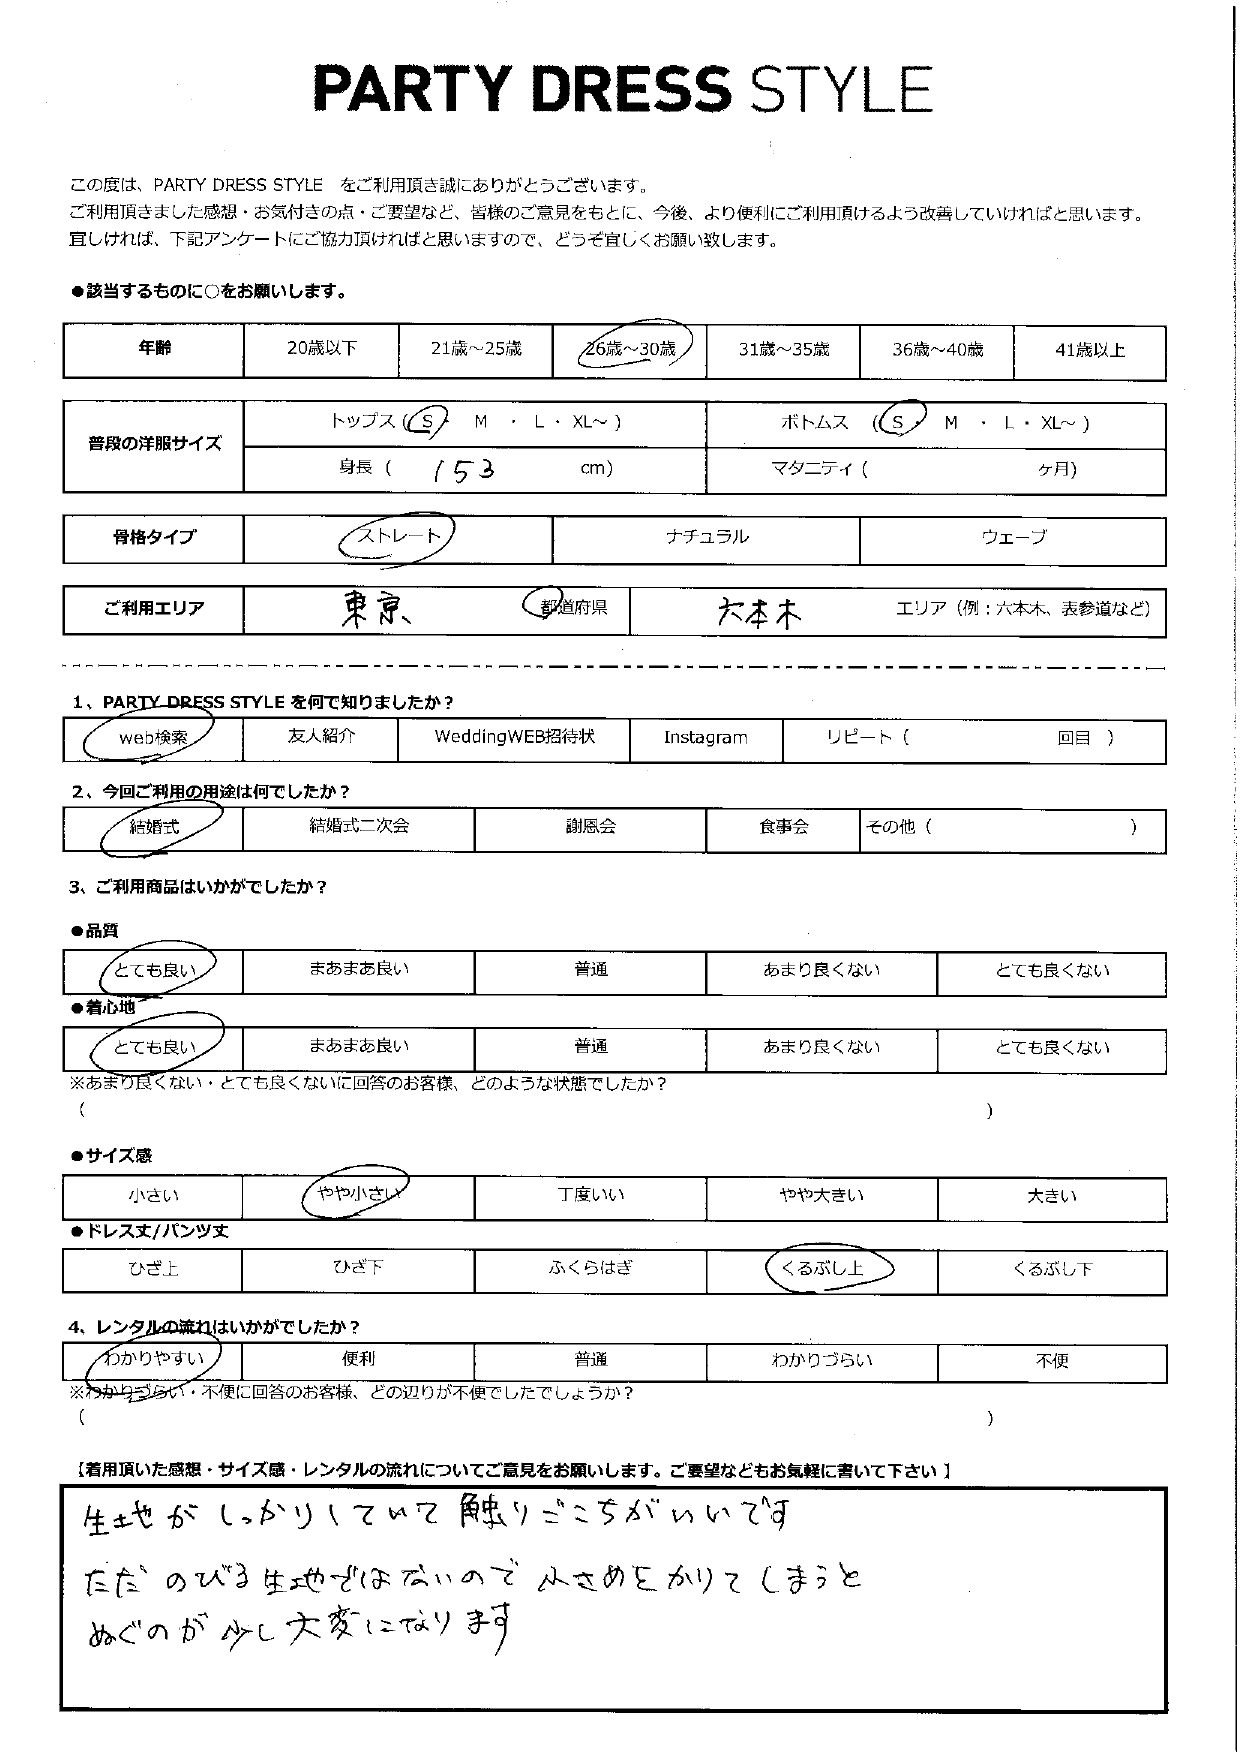 PARTY DRESS STYLE
この度は、PARTY DRESS STYLE　をご利用頂き誠にありがとうございます。
ご利用頂きました感想・お気付きの点・ご要望など、皆様のご意見をもとに、今後、より便利にご利用頂けるよう改善していければと思います。
宜しければ、下記アンケートにご協力頂ければと思いますので、どうぞ宜しくお願い致します。
●該当するものに○をお願いします。
年齢 20歳以下 21歳～25歳 26歳～30歳 31歳～35歳 36歳～40歳 41歳以上
普段の洋服サイズ
トップス（S・ M ・ L ・ XL～ ） ボトムス （S・ M ・ L ・ XL～ ）
身長（ 153 cm） マタニティ（ ヶ月）
骨格タイプ ストレート ナチュラル ウェーブ
ご利用エリア 東京 都道府県 六本木 エリア（例：六本木、表参道など）
1、PARTY DRESS STYLE を何で知りましたか？
web検索 友人紹介 WeddingWEB招待状 Instagram リピート（ 回目 ）
2、今回ご利用の用途は何でしたか？
結婚式 結婚式二次会 謝恩会 食事会 その他（ ）
3、ご利用商品はいかがでしたか？
●品質
とても良い まあまあ良い 普通 あまり良くない とても良くない
●着心地
とても良い まあまあ良い 普通 あまり良くない とても良くない
※あまり良くない・とても良くないに回答のお客様、どのような状態でしたか？
（ ）
●サイズ感
小さい やや小さい 丁度いい やや大きい 大きい
●ドレス丈/パンツ丈
ひざ上 ひざ下 ふくらはぎ くるぶし上 くるぶし下
4、レンタルの流れはいかがでしたか？
わかりやすい 便利 普通 わかりづらい 不便
※わかりづらい・不便に回答のお客様、どの辺りが不便でしたでしょうか？
（ ）
【着用頂いた感想・サイズ感・レンタルの流れについてご意見をお願いします。ご要望などもお気軽に書いて下さい 】
生地がしっかりしていて触りごこちがいいです
ただ のびる生地ではないので 小さめをかりてしまうと
ぬぐのが少し大変になります